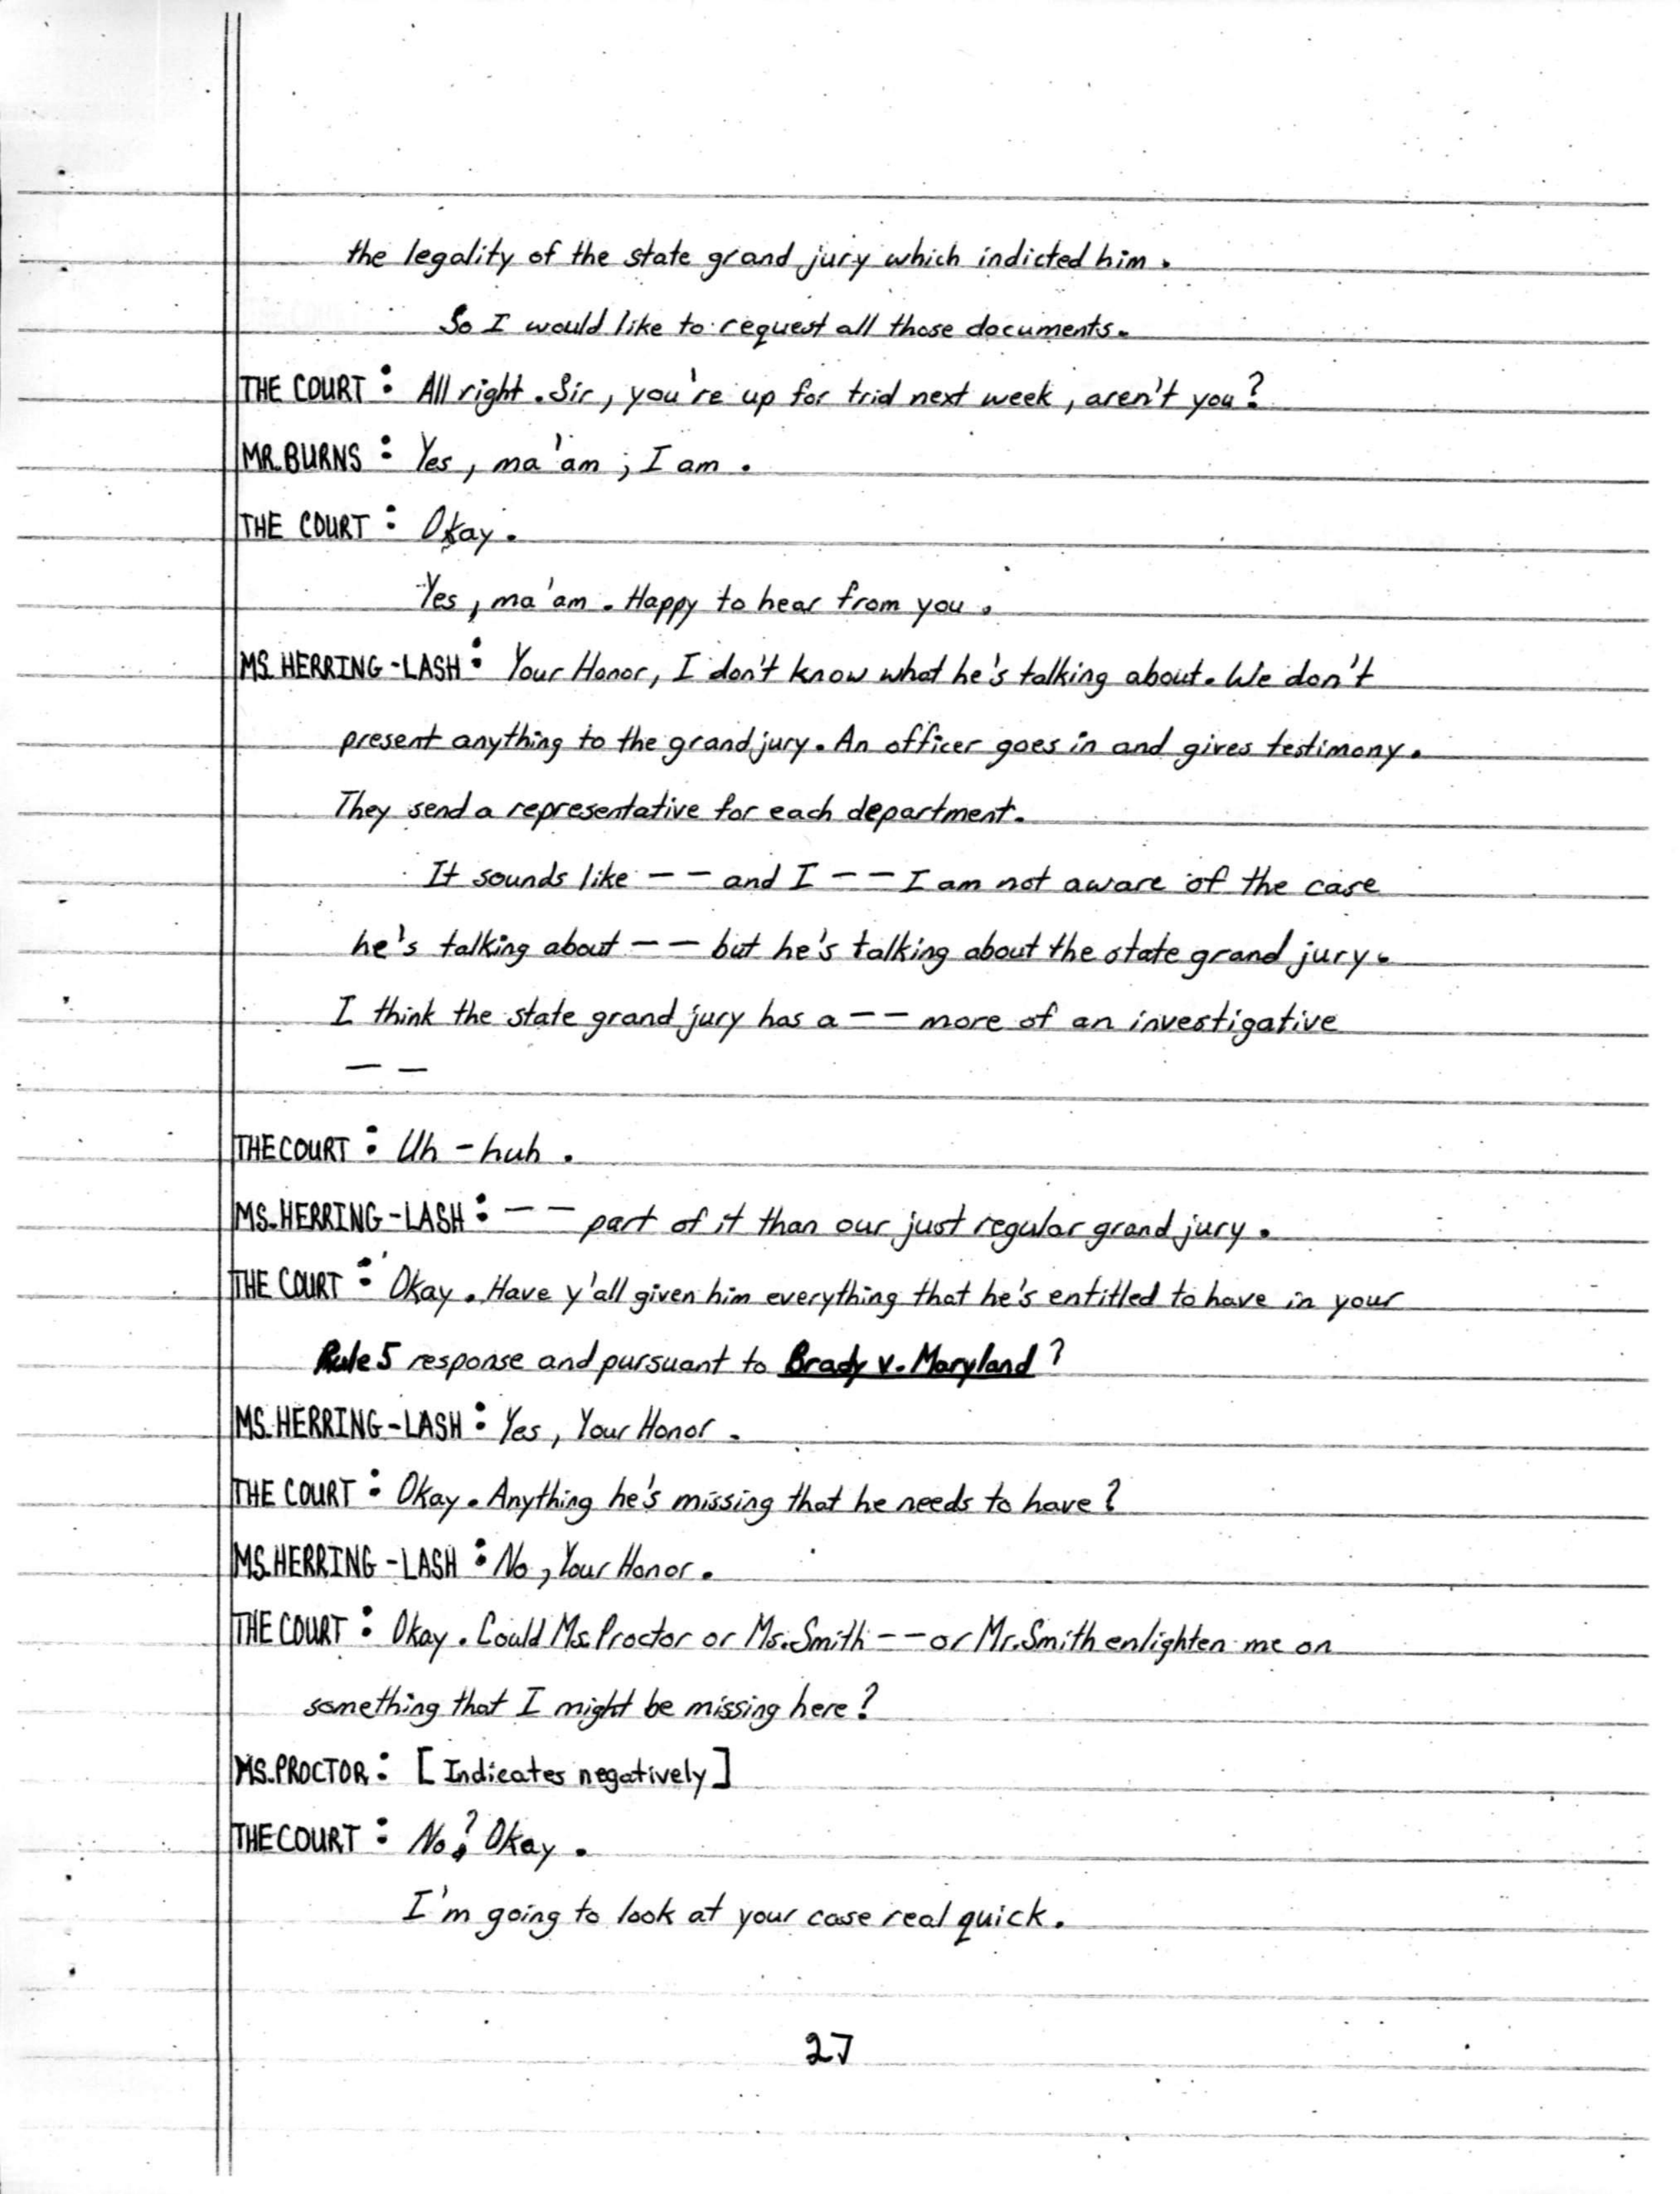 the legality of the state grand jury which indicted him.
So I would like to request all those documents.
THE COURT: All right. Sir, you're up for trial next week, aren't you?
MR. BURNS: Yes, ma'am; I am.
THE COURT: Okay.
Yes, ma'am. Happy to hear from you.
MS. HERRING-LASH: Your Honor, I don't know what he's talking about. We don't
present anything to the grand jury. An officer goes in and gives testimony.
They send a representative for each department.
It sounds like -- and I -- I am not aware of the case
he's talking about -- but he's talking about the state grand jury.
I think the state grand jury has a -- more of an investigative
--
THE COURT: Uh-huh.
MS. HERRING-LASH: -- part of it than our just regular grand jury.
THE COURT: Okay. Have y'all given him everything that he's entitled to have in your
Rule 5 response and pursuant to Brady v. Maryland?
MS. HERRING-LASH: Yes, Your Honor.
THE COURT: Okay. Anything he's missing that he needs to have?
MS. HERRING-LASH: No, Your Honor.
THE COURT: Okay. Could Ms. Proctor or Ms. Smith -- or Mr. Smith enlighten me on
something that I might be missing here?
MS. PROCTOR: [Indicates negatively]
THE COURT: No? Okay.
I'm going to look at your case real quick.
27